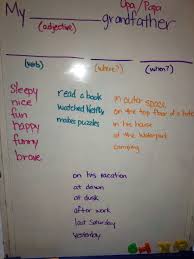 Opa/Papa
My grandfather
(adjective)
(verb) (where?) (when?)
sleepy
nice
fun
happy
funny
brave
read a book
watched Netflix
makes puzzles
in outer space
on the top floor of a hotel
in his house
at the Waterpark
camping
on his vacation
at dawn
at dusk
after work
last Saturday
yesterday